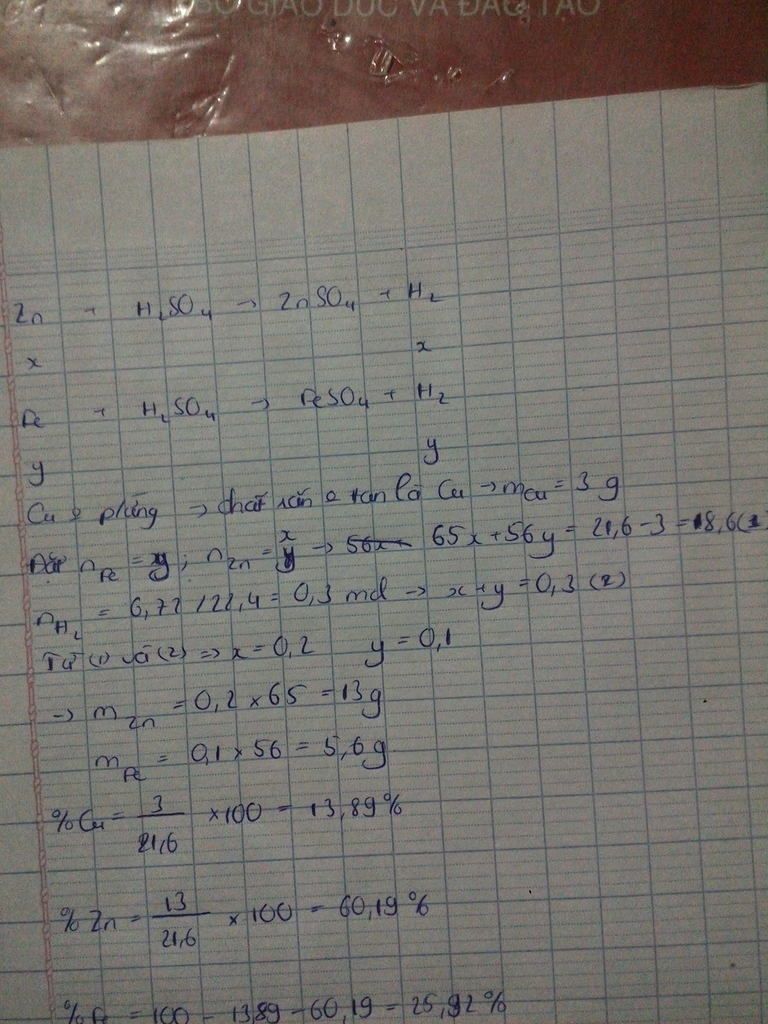 BỘ GIÁO DỤC VÀ ĐÀO TẠO
Zn + H₂SO₄ → ZnSO₄ + H₂
x x
Fe + H₂SO₄ → FeSO₄ + H₂
y y
Cu o phứng → chất rắn o tan là Cu → mCu = 3 g
Đặt nFe = y; nZn = x → 65x + 56y = 21,6 - 3 = 18,6 (1)
nH₂ = 6,72 / 22,4 = 0,3 mol → x + y = 0,3 (2)
Từ (1) và (2) => x = 0,2 y = 0,1
→ mZn = 0,2 × 65 = 13g
mFe = 0,1 × 56 = 5,6g
%Cu = 3/21,6 × 100 = 13,89%
% Zn = 13/21,6 × 100 = 60,19 %
% Fe = 100 - 13,89 - 60,19 = 25,92 %